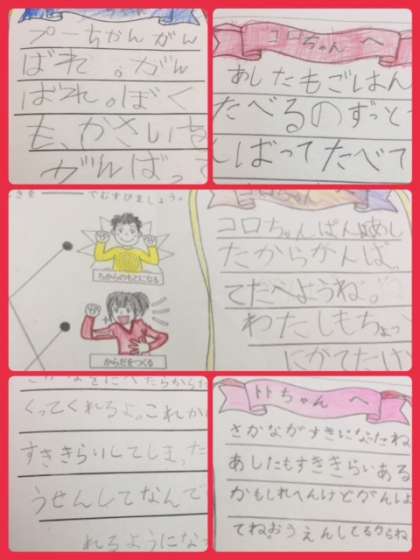 プーちゃんがん
ばれ。がん
ばれ。ぼく
も、かさいも
がんばって
コロちゃん へ
あしたもごはん
たべるのずっと
んばってたべて
きを でむすびましょう。
ちからのもとになる
からだをつくる
コロちゃん、ぱんはあし
たからがんば
てたべようね
わたしもちょっ
にがてだけ
くってくれるよ。これか
すききらいしてしまった
うせんしてなんで
れるようにな
トトちゃん へ
さかながすきになったね
あしたもすききらいある
かもしれへんけどがんば
てね。おうえんしてるからね